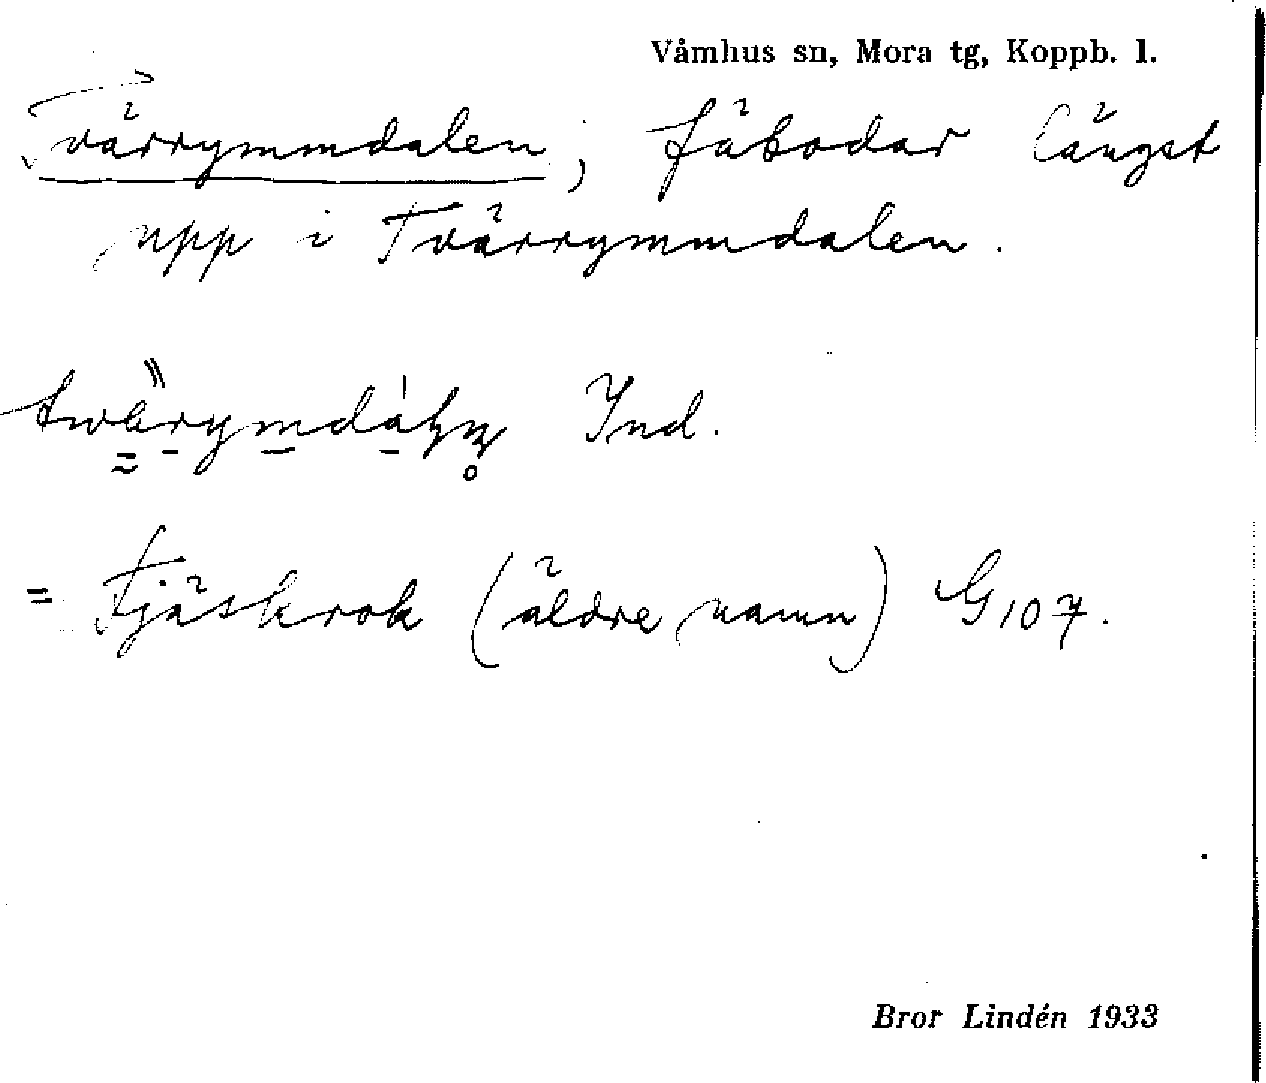 Våmhus sn, Mora tg, Koppb. l.
Tvärrymmdalen, fäbodar längst
upp i Tvärrymmdalen.
Ind.
= Tjäskrok (äldre namn) G107.
Bror Lindén 1933